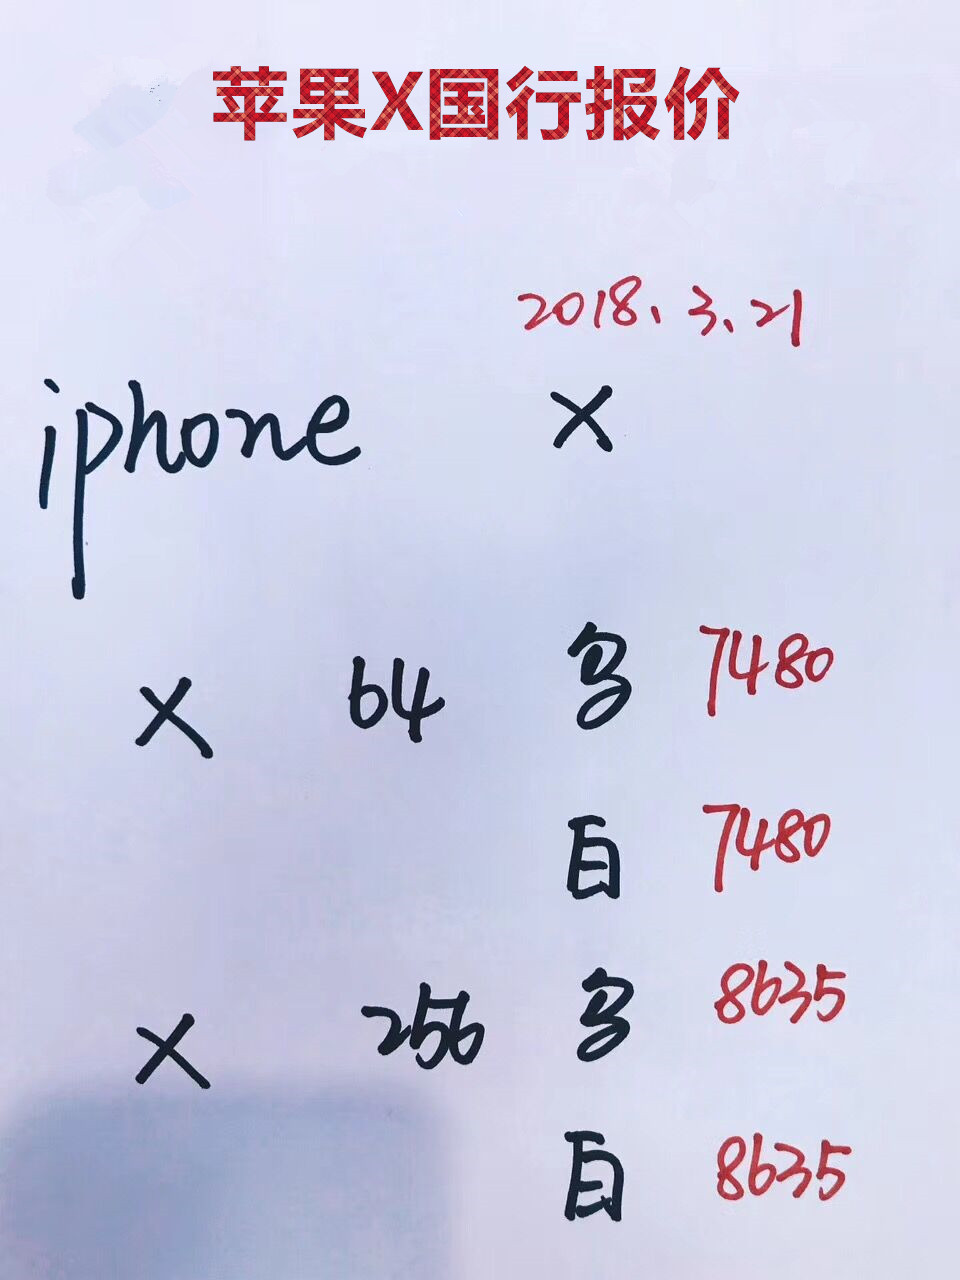 苹果X国行报价
2018.3.21
iphone X
X 64 多 7480
白 7480
X 256 多 8635
白 8635